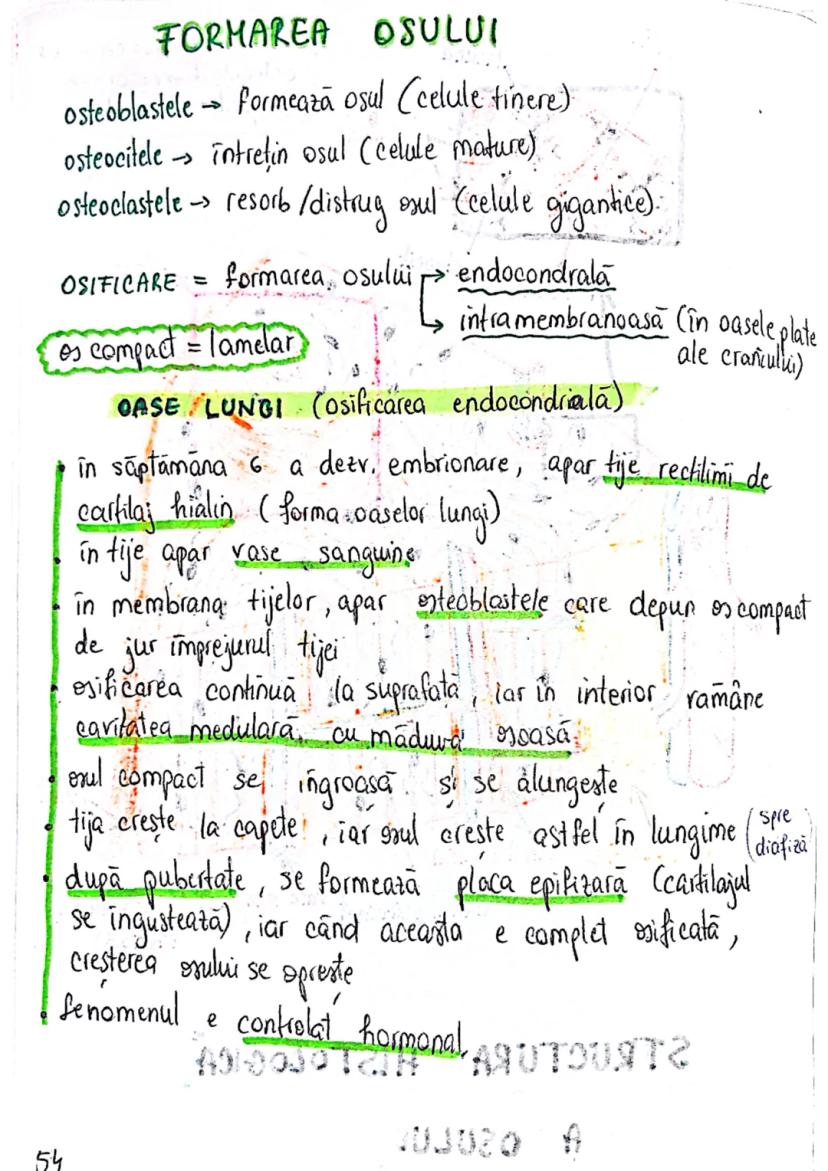 FORMAREA OSULUI
osteoblastele → formează osul (celule tinere)
osteocitele → întrețin osul (celule mature)
osteoclastele → resorb/distrug osul (celule gigantice).
OSIFICARE = formarea osului → endocondrală
→ intramembranoasă (în oasele plate
ale craniului)
os compact = lamelar
OASE LUNGI (osificarea endocondrială)
• în săptămâna 6 a dezv. embrionare, apar tije rectilinii de
cartilaj hialin (forma oaselor lungi)
• în tije apar vase sanguine
• în membrana tijelor, apar osteoblastele care depun os compact
de jur împrejurul tijei
• osificarea continuă la suprafață, iar în interior rămâne
cavitatea medulară, cu măduvă osoasă
• osul compact se îngroașă și se alungește
• tija crește la capete, iar osul crește astfel în lungime (spre
diafiză)
• după pubertate, se formează placa epifizară (cartilajul
se îngustează), iar când aceasta e complet osificată,
creșterea osului se oprește
• fenomenul e controlat hormonal.
STRUCTURA HISTOLOGICĂ
A OSULUI
54